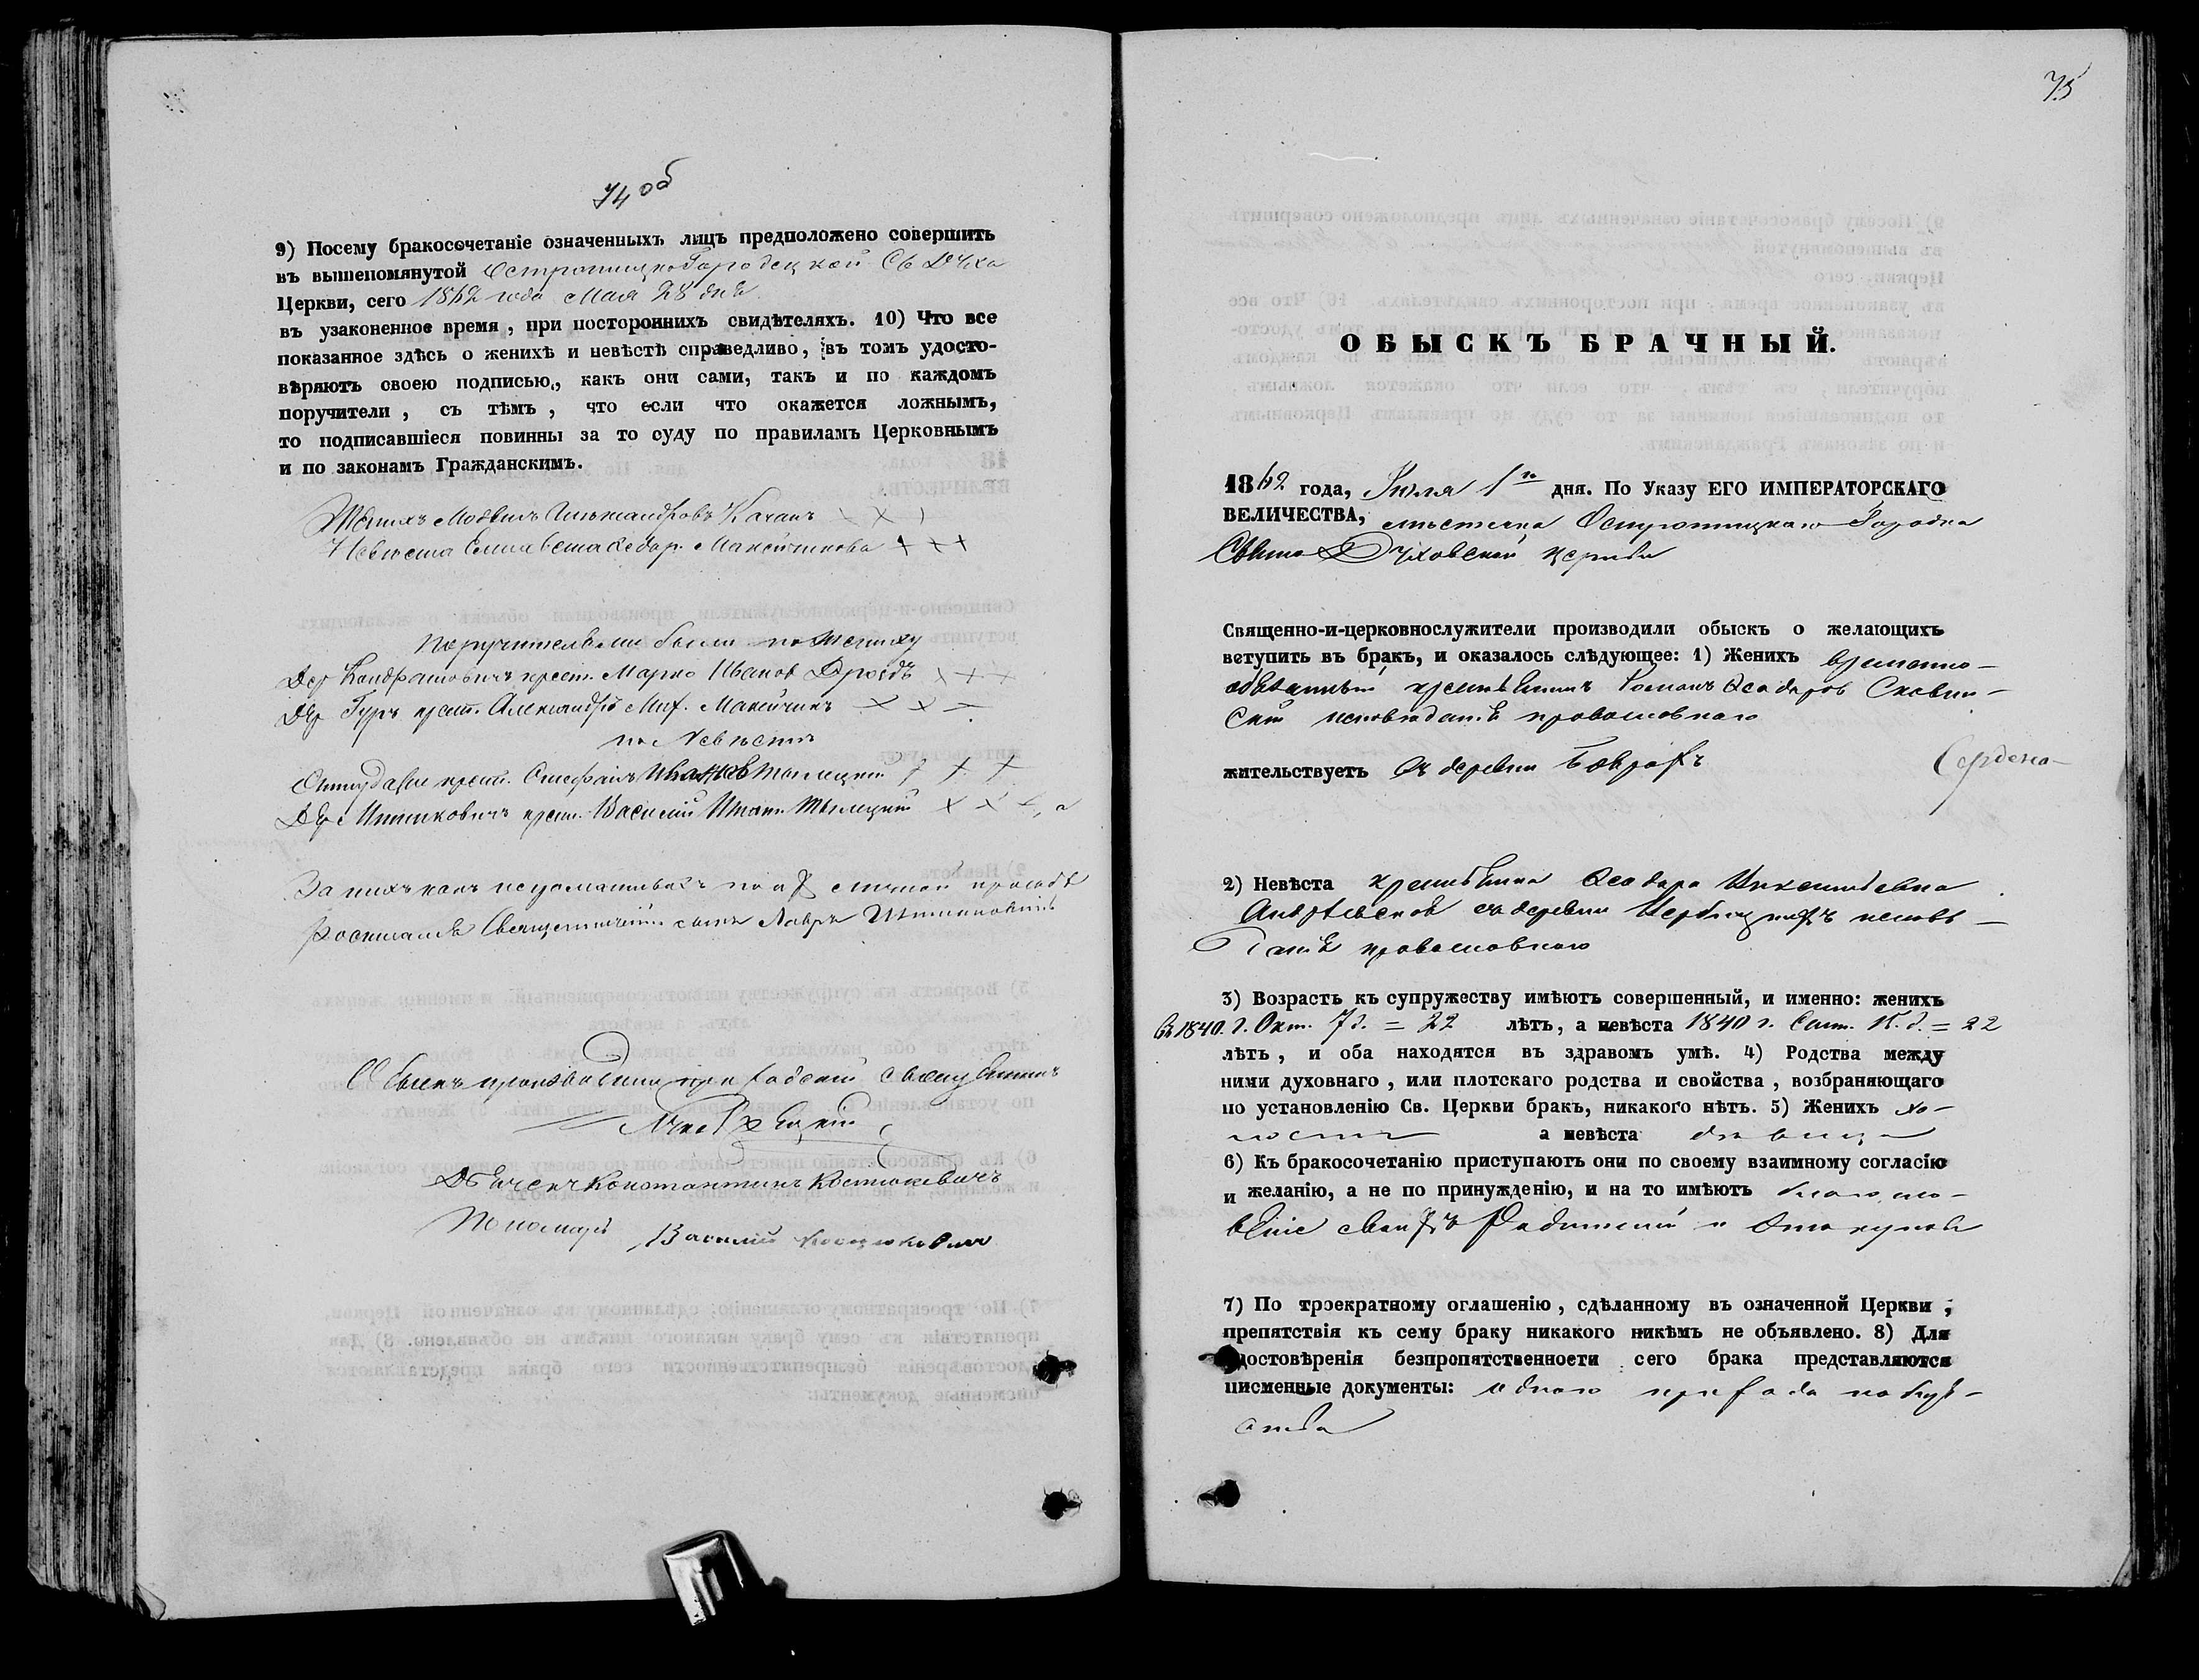 74 об
9) Посему бракосочетаніе означенныхъ лицъ предположено совершить
въ вышепомянутой Острошицко Городецкой Св Духа
Церкви, сего 1862 года Мая 28 дня
въ узаконенное время, при постороннихъ свидѣтеляхъ. 10) Что все
показанное здѣсь о женихѣ и невѣстѣ справедливо, въ томъ удосто-
вѣряютъ своею подписью, какъ они сами, такъ и по каждомъ
поручители, съ тѣмъ, что если что окажется ложнымъ,
то подписавшіеся повинны за то суду по правиламъ Церковнымъ
и по законамъ Гражданскимъ.
Женихъ Качанъ × × ×
Невѣста Елисавета Ѳедор. Макейчикова × × ×
Поручителями были по жениху
Дер Кондратовичъ крест. Марко Иванов Дроздъ × × ×
Дер Гуръ крест. Александръ Мих. Макейчикъ × × ×
по Невѣстѣ
крест. Стефанъ × × ×
Дер Ишниковичъ крест. Василій × × ×
За нихъ какъ неграмотныхъ по их личной просьбѣ
росписался Священническій сынъ Лавръ
Обыскъ производили приходскій Священникъ
Дьячекъ Константинъ Костюкевичъ
Пономарь Василій
75
ОБЫСКЪ БРАЧНЫЙ.
1862 года, Іюля 1го дня. По Указу ЕГО ИМПЕРАТОРСКАГО
ВЕЛИЧЕСТВА, мѣстечка Острошицкаго Городка
Свято Духовской церкви
Священно-и-церковнослужители производили обыскъ о желающихъ
вступить въ бракъ, и оказалось слѣдующее: 1) Женихъ временно-
обязанный крестьянинъ Романъ Ѳеодоров
исповѣданія православнаго
жительствуетъ въ деревни
2) Невѣста крестьянка Ѳеодора
съ деревни исповѣ-
данія православнаго
3) Возрастъ къ супружеству имѣютъ совершенный, и именно: женихъ
въ 1840. г. Окт. 7 д. = 22 лѣтъ, а невѣста 1840 г. Сент. 15. д. = 22
лѣтъ, и оба находятся въ здравомъ умѣ. 4) Родства между
ними духовнаго, или плотскаго родства и свойства, возбраняющаго
по установленію Св. Церкви бракъ, никакого нѣтъ. 5) Женихъ хо-
лостъ а невѣста дѣвица
6) Къ бракосочетанію приступаютъ они по своему взаимному согласію
и желанію, а не по принужденію, и на то имѣютъ благосло-
веніе своихъ Родителей и Опекунов
7) По троекратному оглашенію, сдѣланному въ означенной Церкви,
препятствія къ сему браку никакого никѣмъ не объявлено. 8) Для
удостовѣренія безпропятственности сего брака представляются
писменные документы: одного прихода